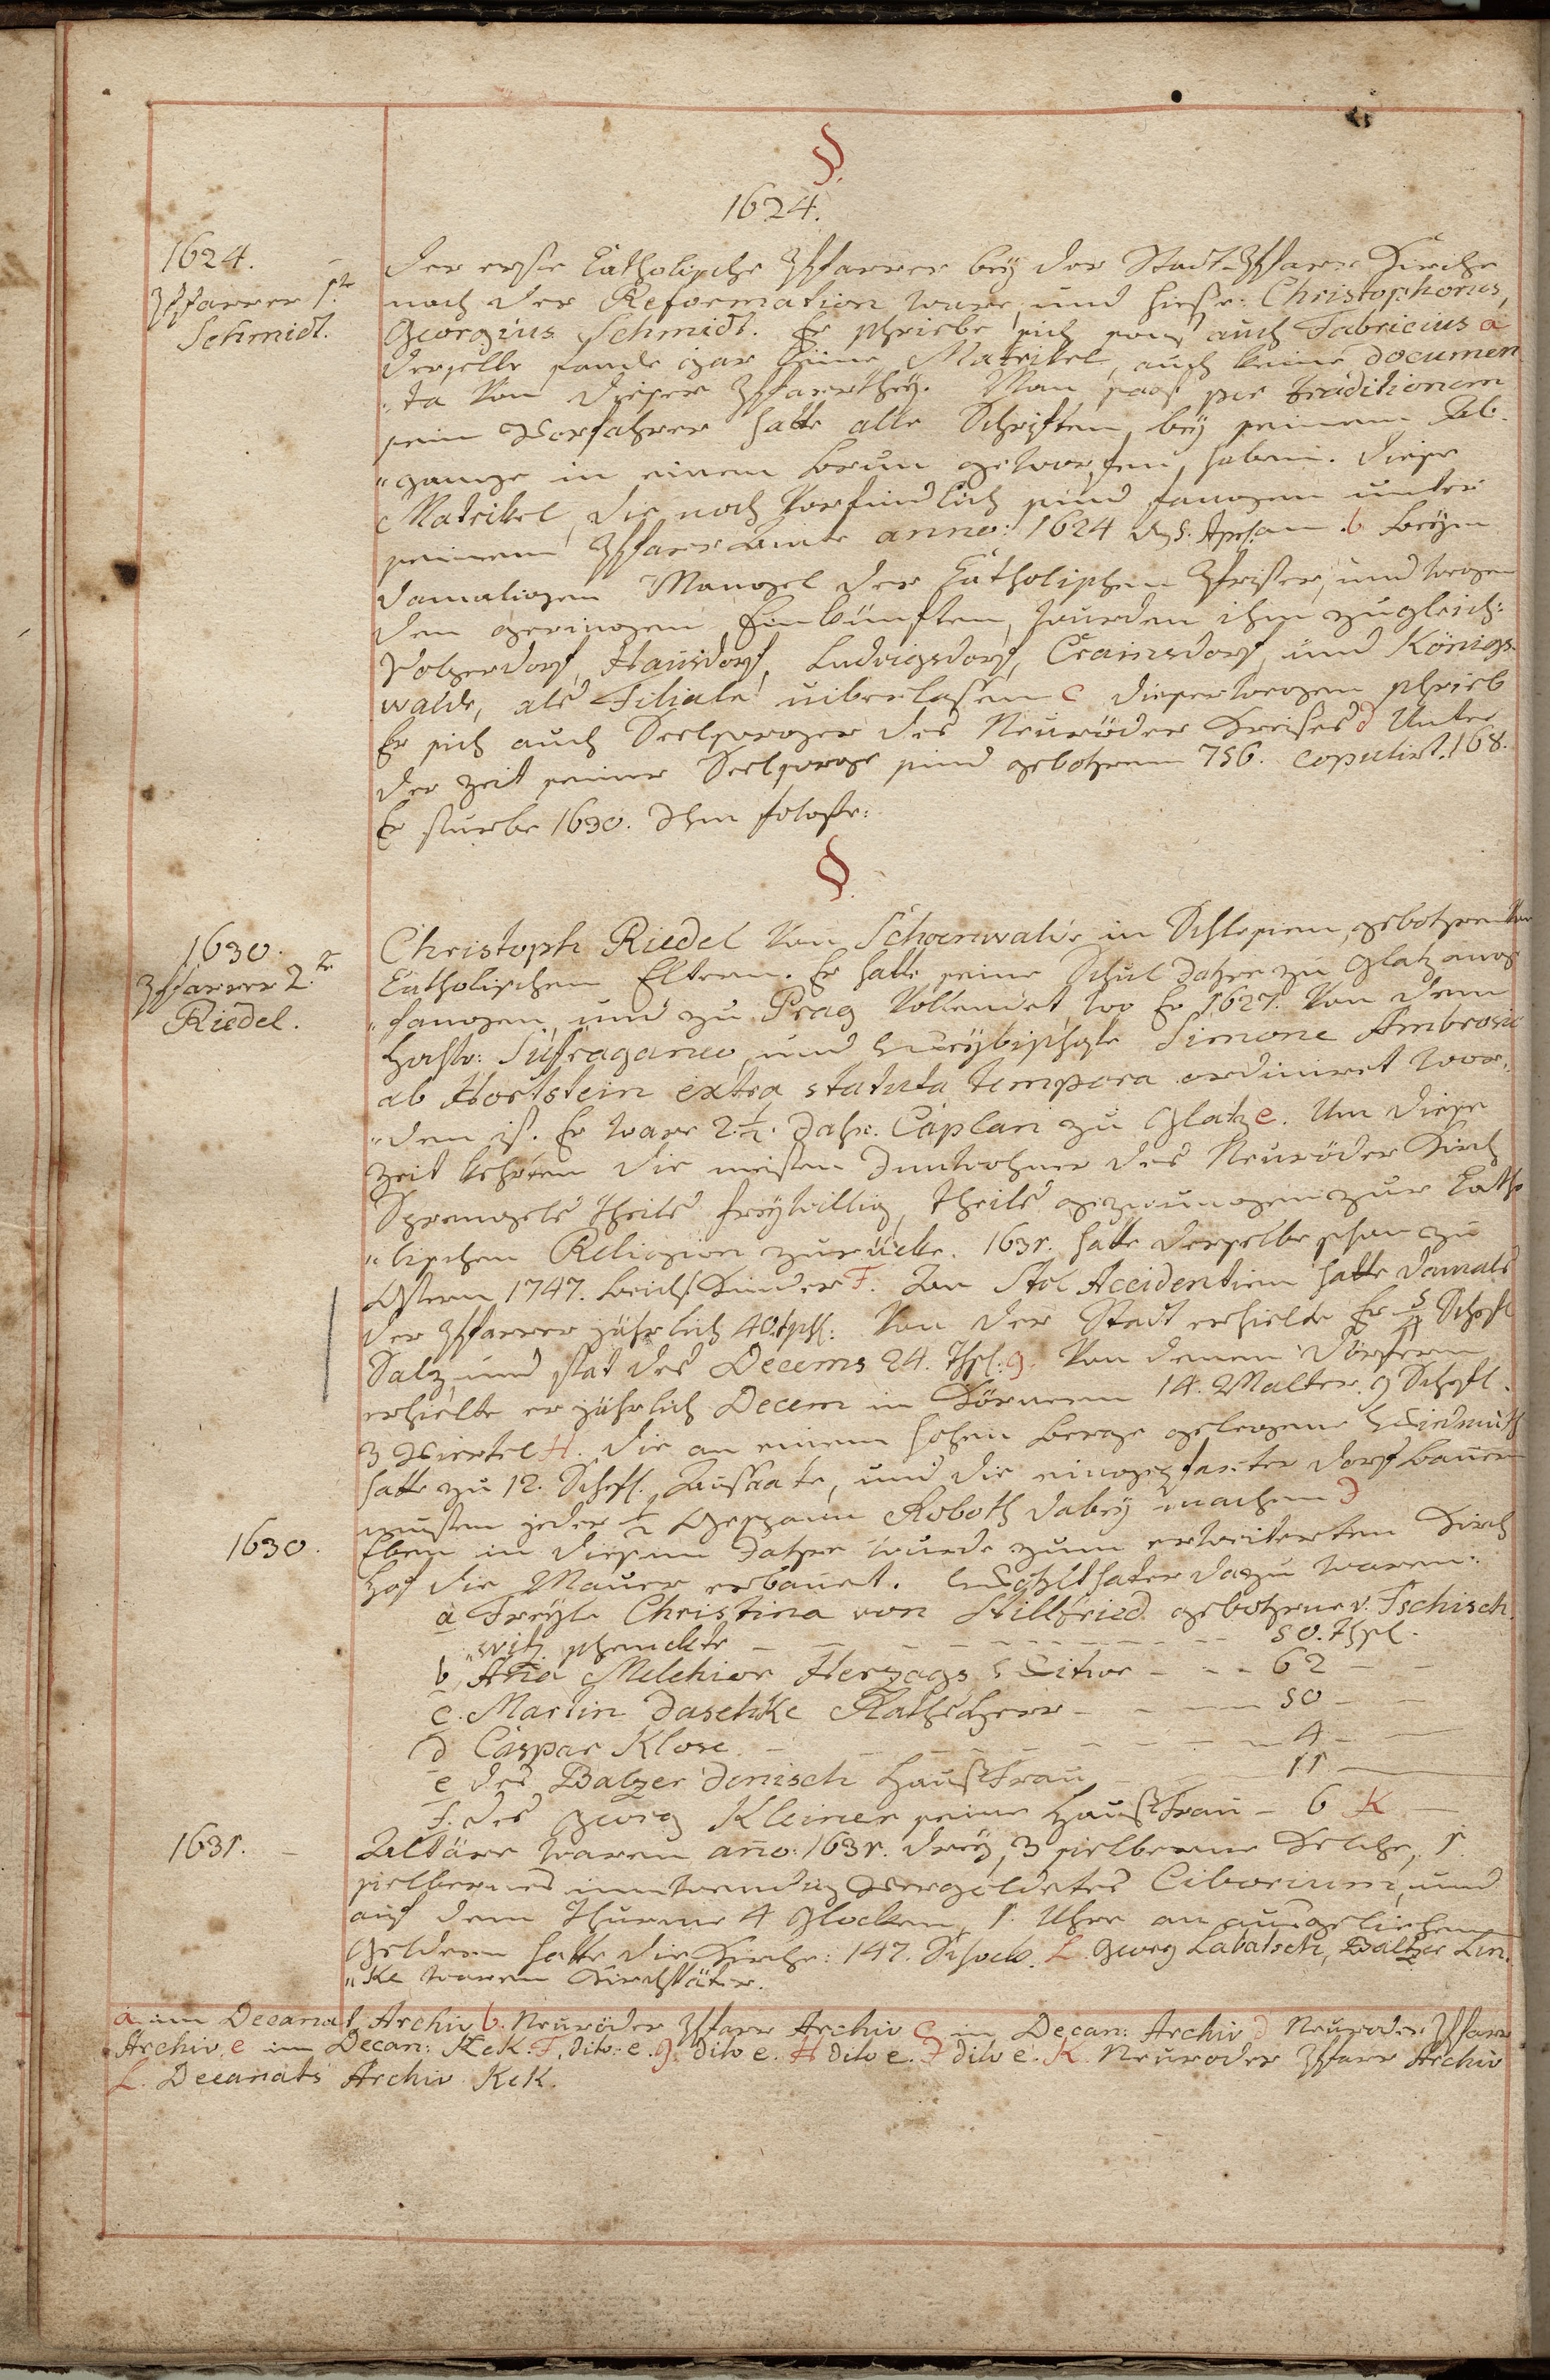 §.
1624.
1624.
Pfarrer 1.te
Schmidt.
Der erste Catholische Pfarrer bey der Stadt-Pfarr Kirche
nach der Reformation ware, und hieße: Christophorus,
Georgius Schmidt. Er schriebe sich sonst auch Fabricius a
derselbe fande gar keine Matrikel, auch keine documen
"ta von dieser Pfarrthey. Man sagt per traditionem
sein Vorfahrer hatte alle Schriften, bey seinem Ab-
"gange in einem Brun geworfen, haben. Diese
Matrikel, die noch Vorfindlich sind fangen unter
seinem Pfarr Amte anno: 1624 an. b Beym
damaligen Mangel der Catholischen Prister, und wegen
den geringen Einkünften, wurden ihm zugleich:
Volperdorf, Hausdorf, Ludvigsdorf, Crainsdorf, und Königs-
walde, als Filiale uiberlaßen c dieserwegen schrieb
Er sich auch Seelsorger des Neuröder Kreises d Unter
der Zeit seiner Seelsorge sind gebohren 756. copulirt. 168.
Er sturbe 1630. Ihm folgte:
§.
1630.
Pfarrer 2.te
Riedel.
Christoph Riedel von Schoenwalde in Schlesien, gebohren von
Catholischen Eltern. Er hatte seine Schul Jahre zu Glatz ange
"fangen, und zu Prag vollendet, wo Er 1627. von dem
Hochw: Sufraganeo, und Weybischofe Simone Ambrosio
ab Hortstein extra statuta tempora ordiniret wor-
"den ist. Er ware 2 ½. Jahr. Caplan zu Glatz e. Um diese
Zeit kehrten die meisten Innwohner des Neuröder Kirch
Sprengels theils freywillig, theils gezwungen zur Catho
"lischen Religion zurücke. 1631. hatte derselbe schon zu
Ostern 1747. Beicht Kinder F. An Stol Accidentien hatte damals
der Pfarrer jährlich 40. Von der Stadt erhielte Er Schefl
Salz, und stat des Decems 24. Thl. g. Von denen Dörfern
erhielte er jährlich Decem in Körnern 14. Malter. 9 Schefl.
3 Viertel H. Die an einem hohen Berge gelegene Wiedmuth
hatte zu 12. Schefl. Aussaate, und die eingepfarrter Dorf Bauern
musten jeder ½ Gespann Roboth dabey machen J
1630.
Eben in diesem Jahre wurde zum erweiterten Kirch
Hof die Mauer erbauet. Wohlthater dazu waren:
a Freyle Christina von Stillfried gebohrne v. Tschisch
"witz schenckte - - - - - - - - - 50. Thl.
b. Ana Melchior Herzogs Witwe - - - 62 - -
c. Martin Jaschke Rathsherr - - - - 50 - -
d Caspar Klose - - - - - - - - 4 - -
e des Balzer Jenisch Hauß Frau - - - 11 -
f. des Georg Kleiner seine Hauß Frau - 6 K -
1631. -
Altäre waren anno: 1631. drey, 3 sielberne Kelche, 1.
sielbernes innwendig Vergoldetes Ciborium, und
auf dem Thurme 4 Glocken, 1. Uhre an ausgeliehenen
Geldern hatte die Kirche: 147. Schock. L. Georg Labatsch, Baltzer Lin-
"ke waren Kirchväter.
a. im Decanat Archiv b. Neuröder Pfarr Archiv C in Decan: Archiv d Neuroder Pfarr
Archiv. e im Decan: KcK. F. dito: e. g. dito e. H dito e. J dito e. K. Neuroder Pfarr Archiv
L. Decanats Archiv KcK.